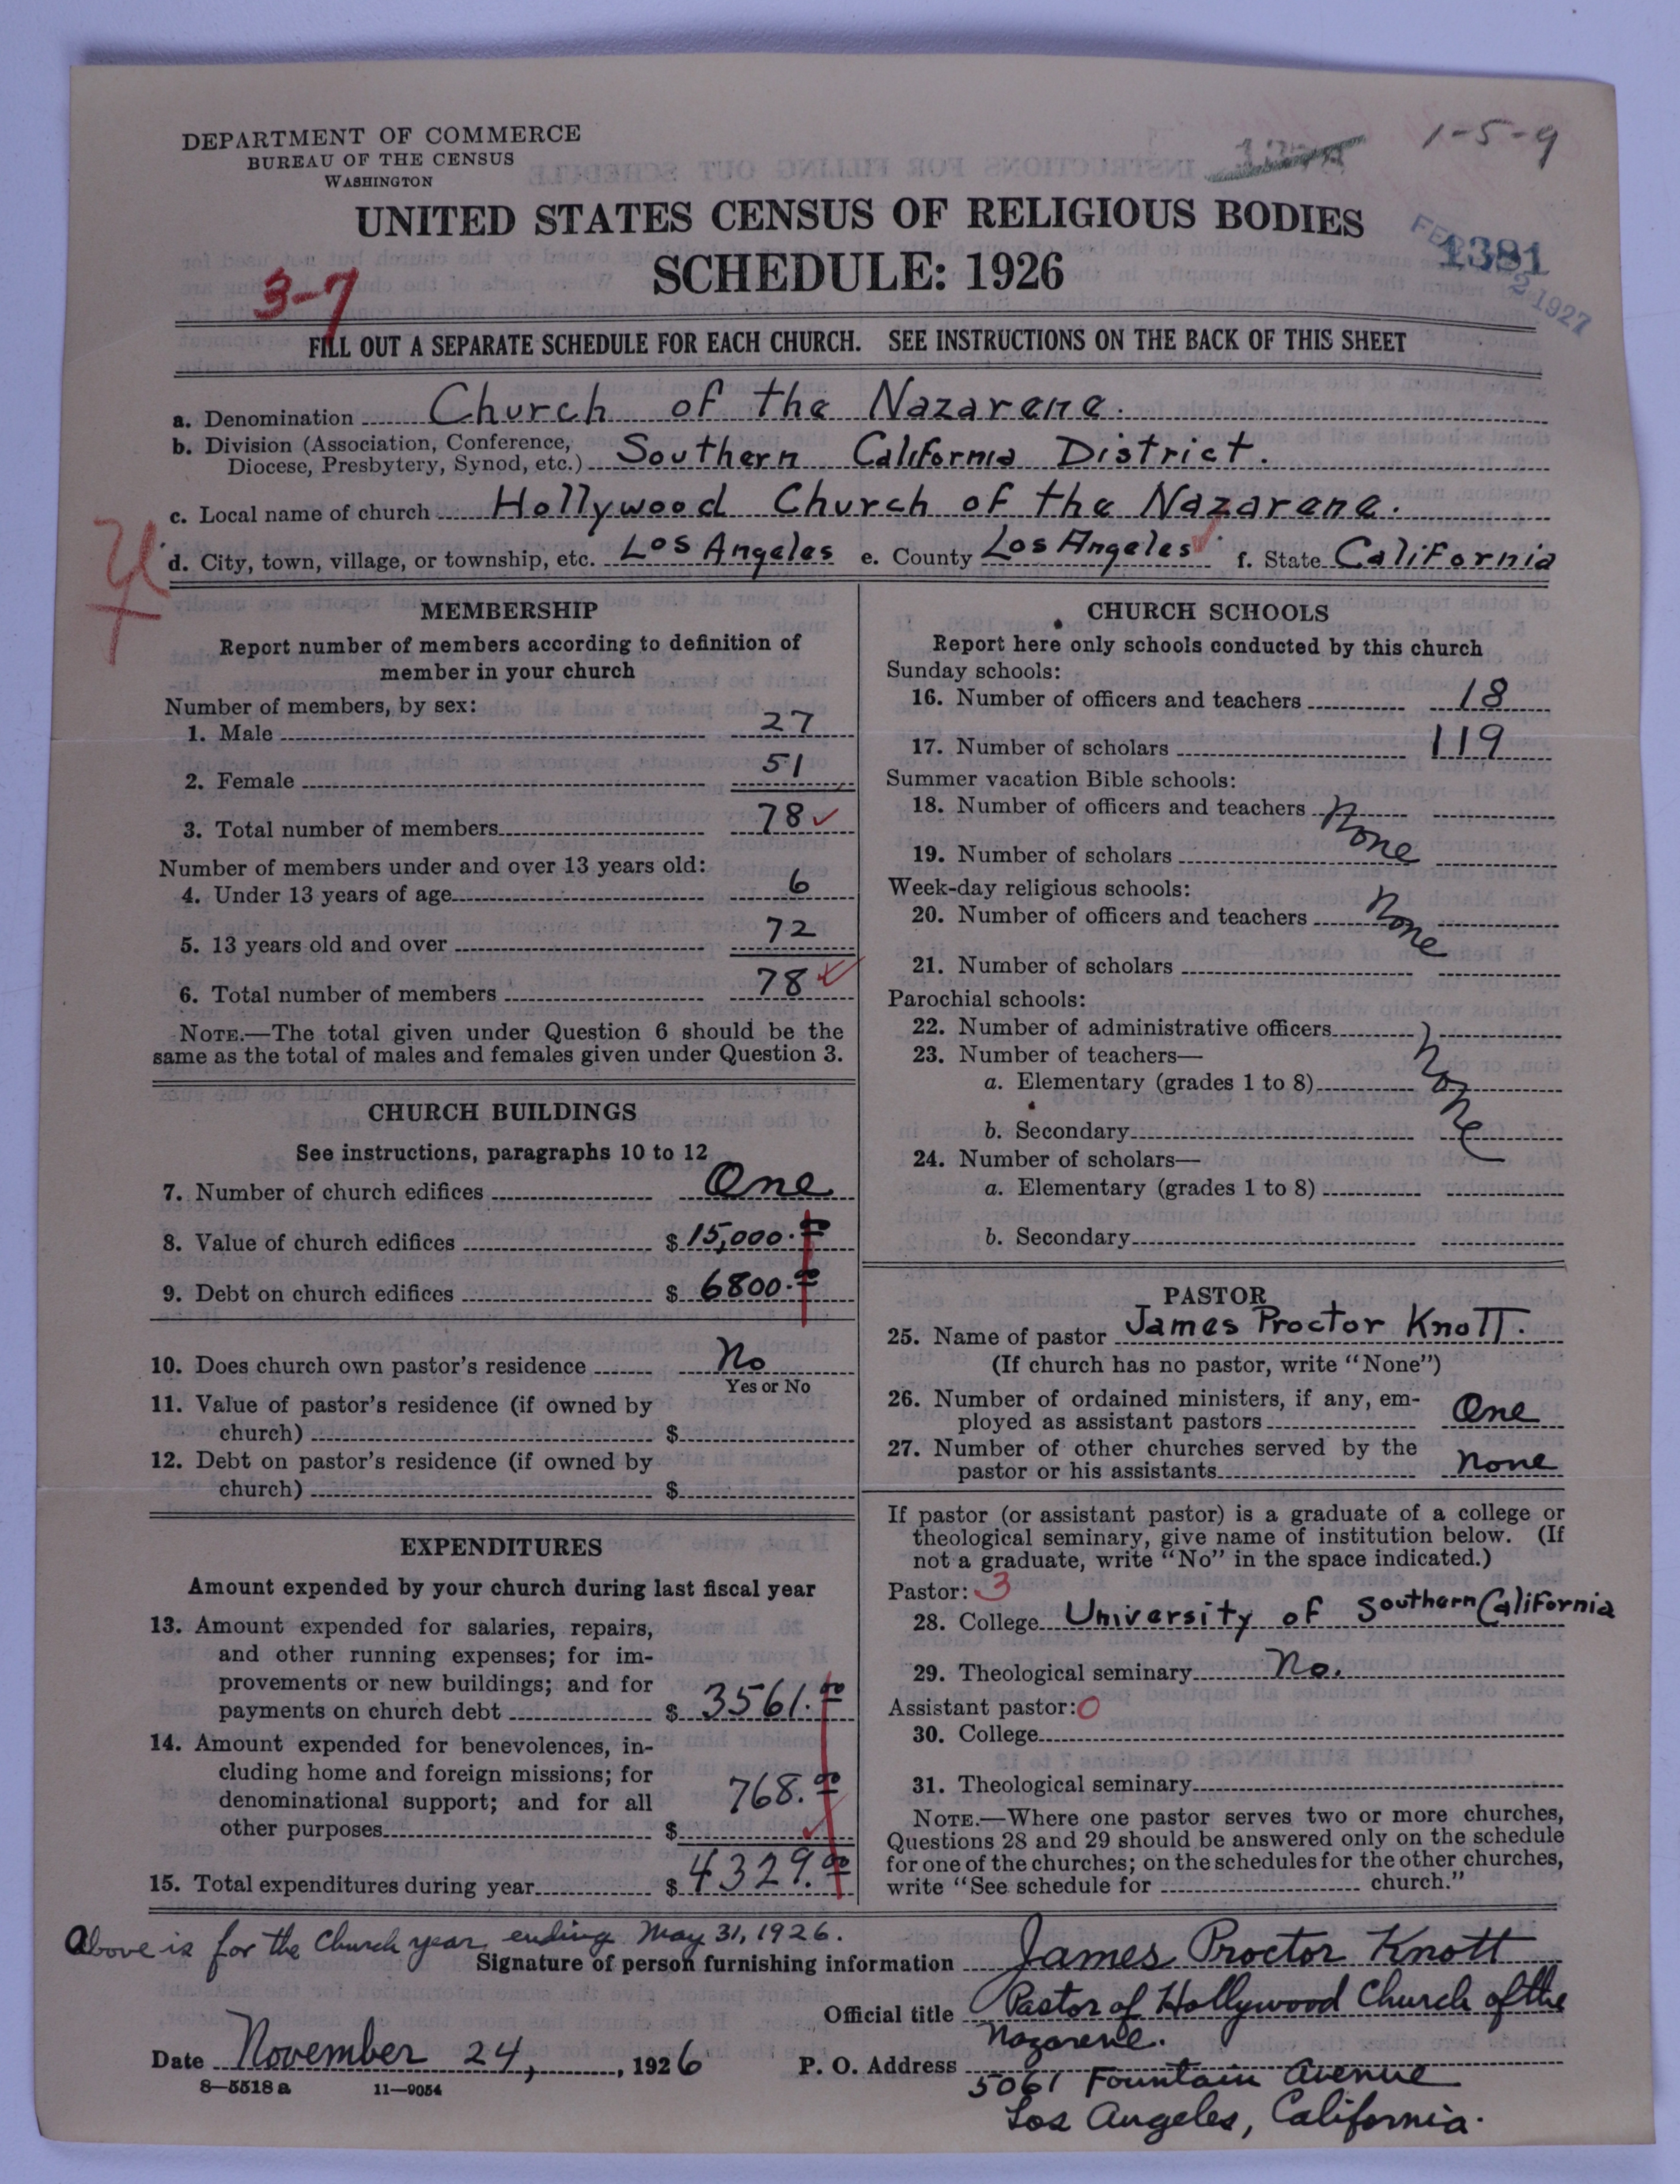 DEPARTMENT OF COMMERCE
BUREAU OF THE CENSUS
WASHINGTON
1-5-9
UNITED STATES CENSUS OF RELIGIOUS BODIES
SCHEDULE: 1926
1381
FEB 2 1927
3-7
FILL OUT A SEPARATE SCHEDULE FOR EACH CHURCH. SEE INSTRUCTIONS ON THE BACK OF THIS SHEET
a. Denomination Church of the Nazarene.
b. Division (Association, Conference,
Diocese, Presbytery, Synod, etc.) Southern California District.
c. Local name of church Hollywood Church of the Nazarene.
d. City, town, village, or township, etc. Los Angeles e. County Los Angeles f. State California
MEMBERSHIP
Report number of members according to definition of
member in your church
Number of members, by sex:
1. Male 27
2. Female 51
3. Total number of members 78
Number of members under and over 13 years old:
4. Under 13 years of age 6
5. 13 years old and over 72
6. Total number of members 78
NOTE.—The total given under Question 6 should be the
same as the total of males and females given under Question 3.
CHURCH BUILDINGS
See instructions, paragraphs 10 to 12
7. Number of church edifices One
8. Value of church edifices $ 15,000.00
9. Debt on church edifices $ 6800.00
10. Does church own pastor's residence No
Yes or No
11. Value of pastor's residence (if owned by
church) $
12. Debt on pastor's residence (if owned by
church) $
EXPENDITURES
Amount expended by your church during last fiscal year
13. Amount expended for salaries, repairs,
and other running expenses; for im-
provements or new buildings; and for
payments on church debt $ 3561.00
14. Amount expended for benevolences, in-
cluding home and foreign missions; for
denominational support; and for all
other purposes $ 768.00
15. Total expenditures during year $ 4329.00
CHURCH SCHOOLS
Report here only schools conducted by this church
Sunday schools:
16. Number of officers and teachers 18
17. Number of scholars 119
Summer vacation Bible schools:
18. Number of officers and teachers None
19. Number of scholars
Week-day religious schools:
20. Number of officers and teachers None
21. Number of scholars
Parochial schools:
22. Number of administrative officers None
23. Number of teachers—
a. Elementary (grades 1 to 8)
b. Secondary
24. Number of scholars—
a. Elementary (grades 1 to 8)
b. Secondary
PASTOR
25. Name of pastor James Proctor Knott.
(If church has no pastor, write "None")
26. Number of ordained ministers, if any, em-
ployed as assistant pastors One
27. Number of other churches served by the
pastor or his assistants None
If pastor (or assistant pastor) is a graduate of a college or
theological seminary, give name of institution below. (If
not a graduate, write "No" in the space indicated.)
Pastor: 3
28. College University of Southern California
29. Theological seminary No.
Assistant pastor: 0
30. College
31. Theological seminary
NOTE.—Where one pastor serves two or more churches,
Questions 28 and 29 should be answered only on the schedule
for one of the churches; on the schedules for the other churches,
write "See schedule for church."
Above is for the Church year ending May 31, 1926.
Signature of person furnishing information James Proctor Knott
Official title Pastor of Hollywood Church of the
Nazarene.
Date November 24, 1926 P. O. Address 5061 Fountain Avenue
8-5518a 11-9054
Los Angeles, California.